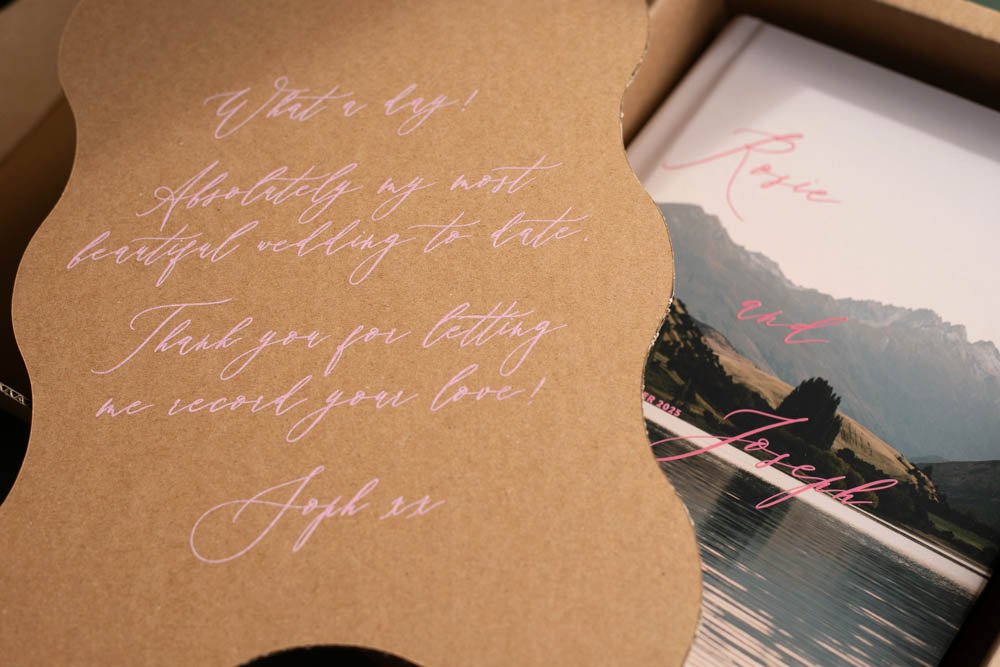 What a day!
Absolutely my most
beautiful wedding to date.
Thank you for letting
me record your love!
Soph xx
Rosie
and
2025
Joseph